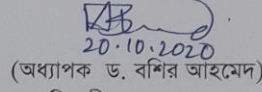 20.10.2020
(অধ্যাপক ড. বশির আহমেদ)